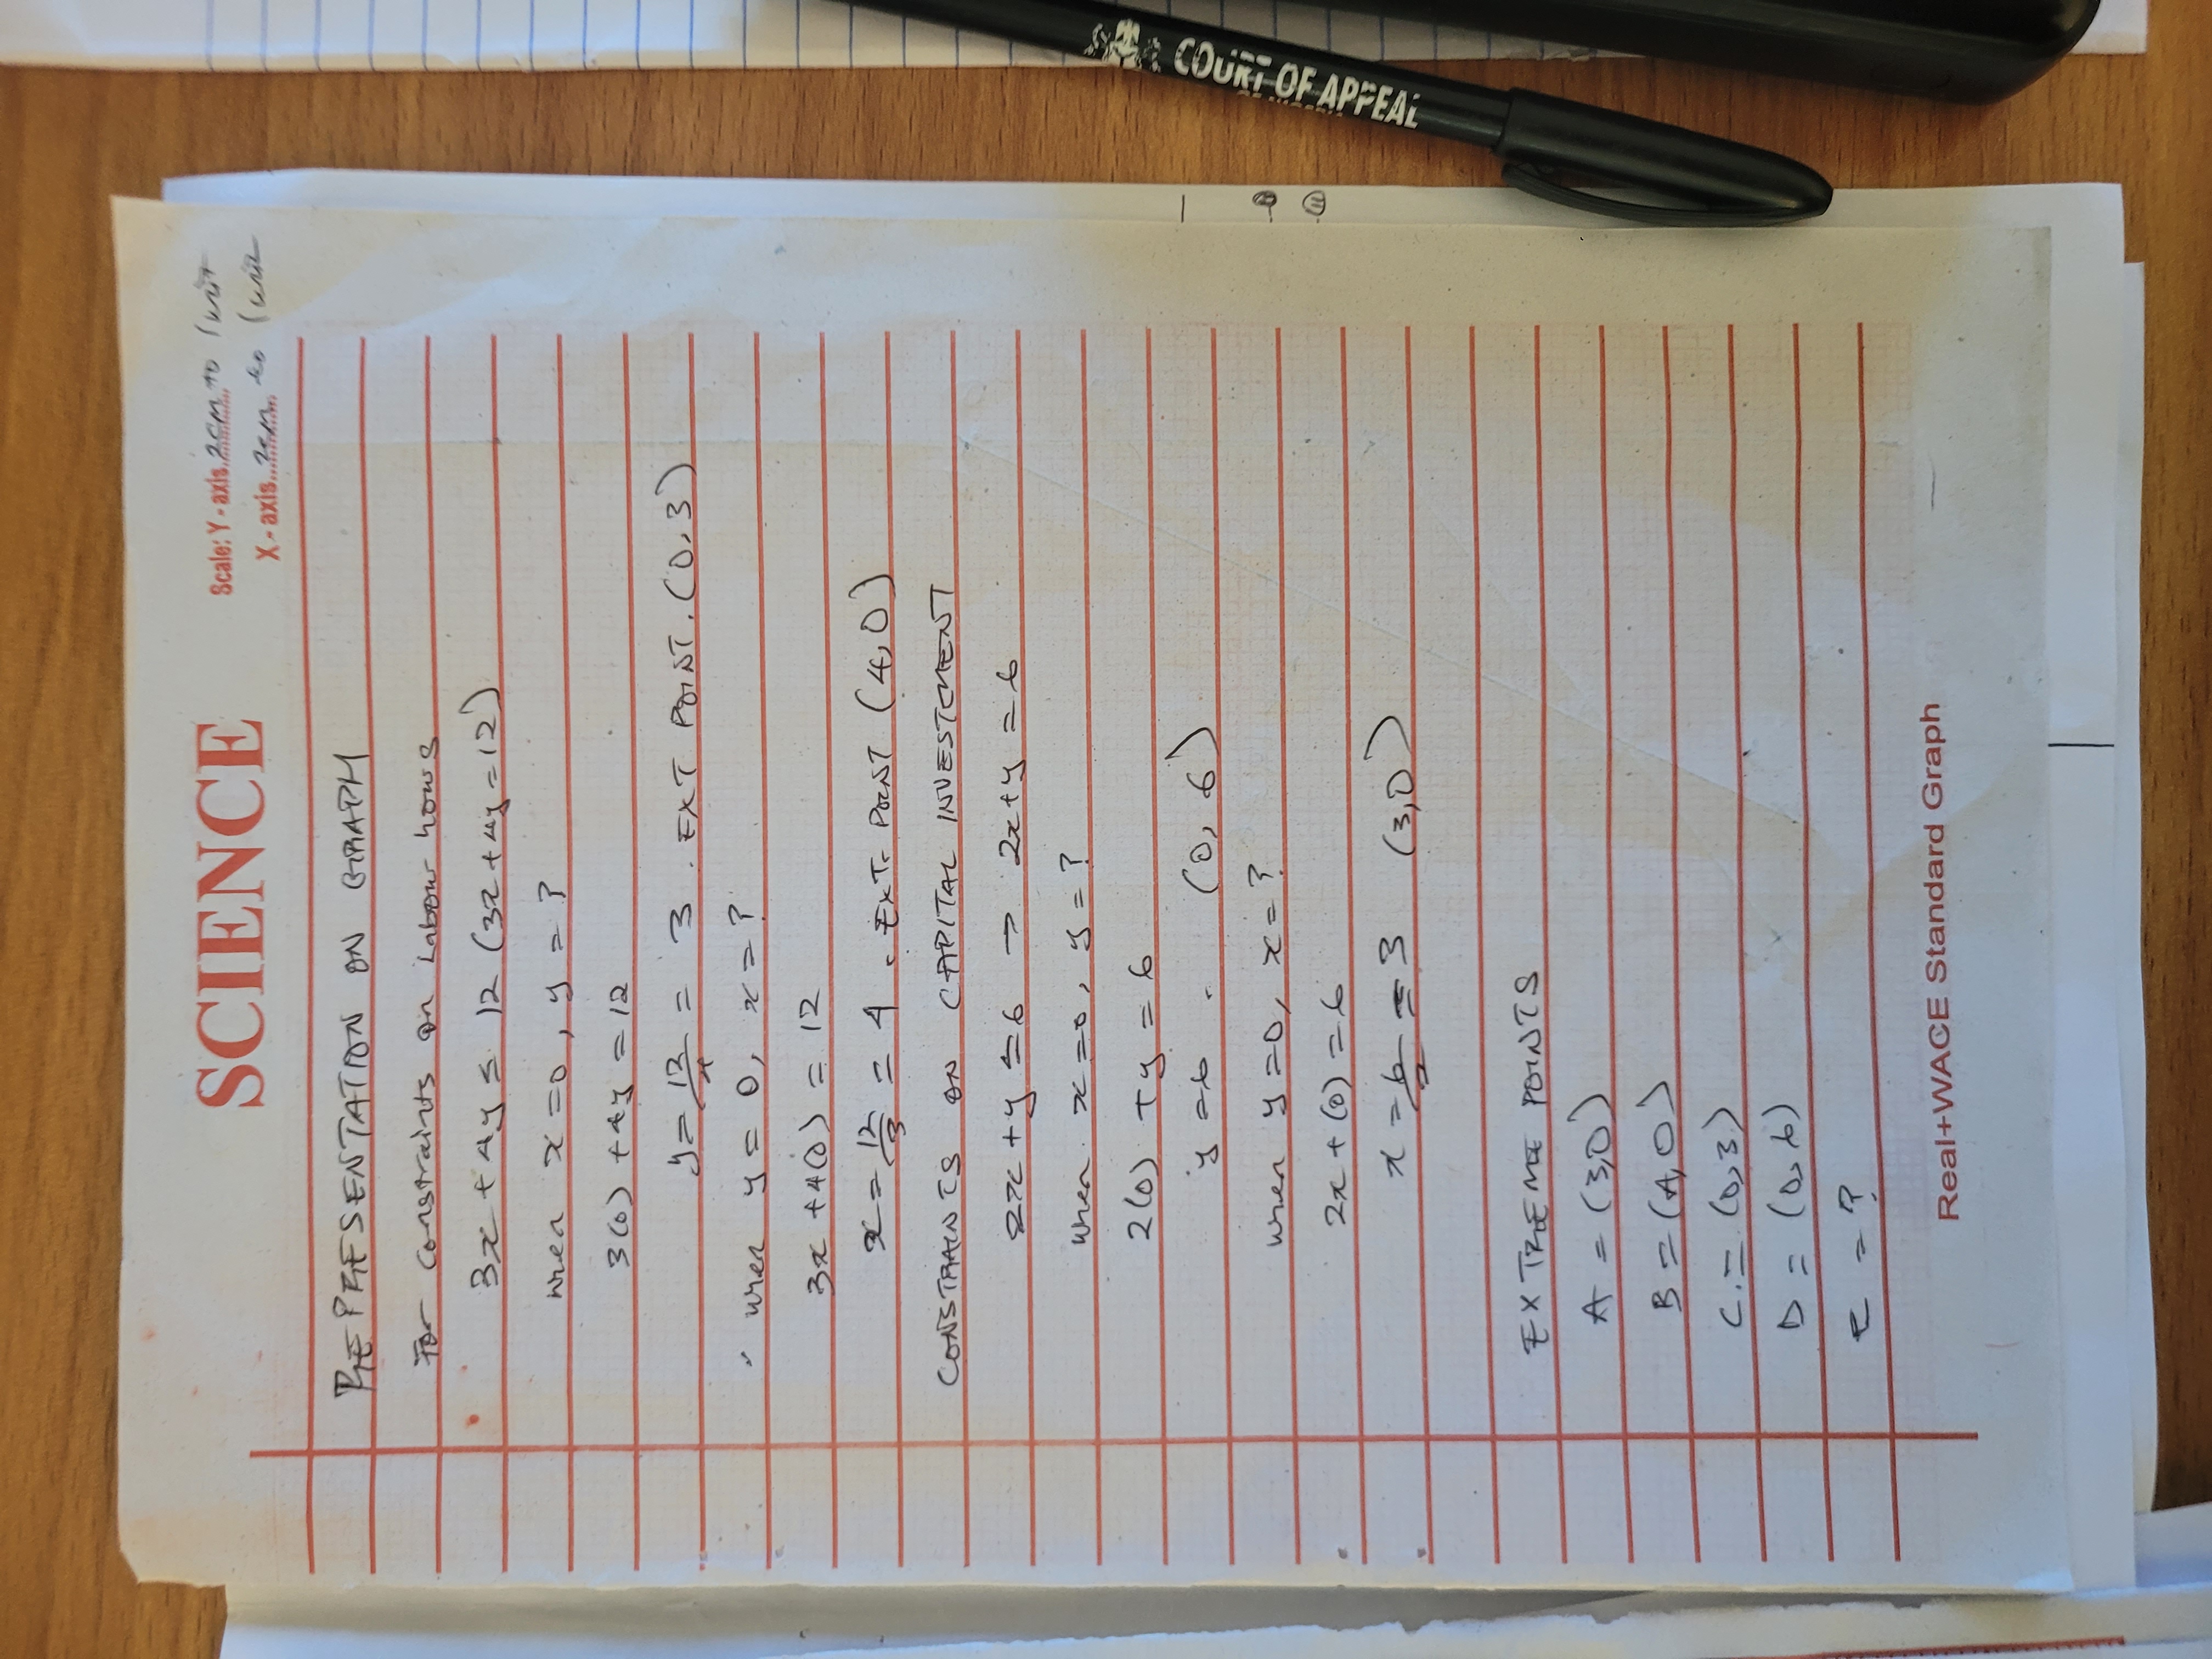 SCIENCE
Scale: Y - axis 2cm to 1 unit
X - axis 2cm to 1 unit
REPRESENTATION ON GRAPH
For constraints on Labour hours
3x + 4y ≤ 12 (3x + 4y = 12)
when x = 0, y = ?
3(0) + 4y = 12
y = 12/4 = 3 . EXT POINT. (0,3)
when y = 0, x = ?
3x + 4(0) = 12
x = 12/3 = 4 . EXT. POINT (4,0)
CONSTRAINTS ON CAPITAL INVESTMENT
2x + y ≤ 6 → 2x + y = 6
when x = 0, y = ?
2(0) + y = 6
y = 6 . (0, 6)
when y = 0, x = ?
2x + (0) = 6
x = 6/2 = 3 (3,0)
EXTREME POINTS
A = (3,0)
B = (4,0)
C. = (0,3)
D = (0,6)
E = ?
Real+WACE Standard Graph
COURT OF APPEAL